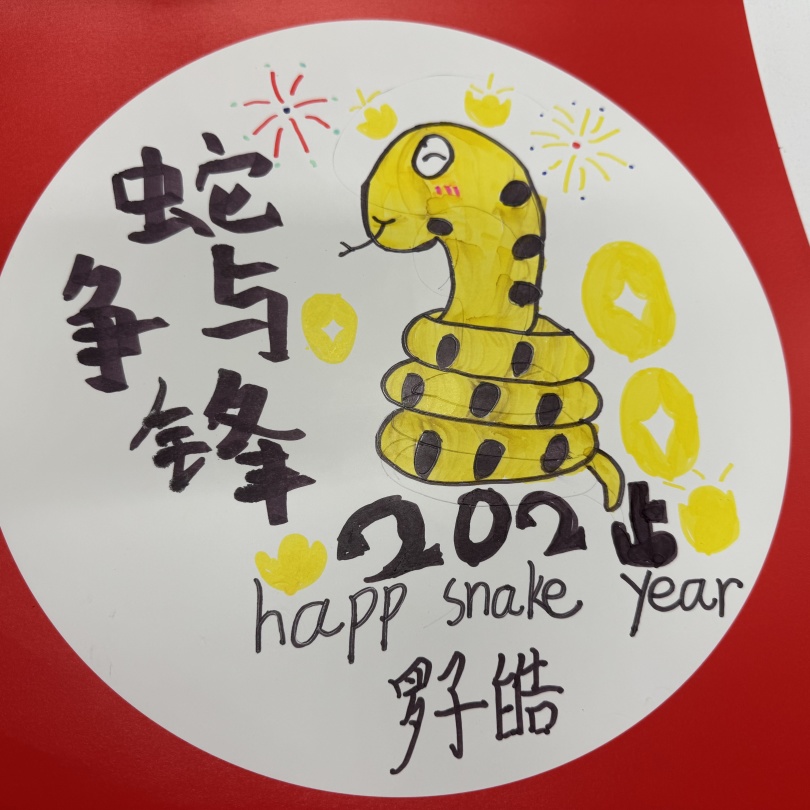 蛇与
争锋
2025
happ snake year
罗子皓